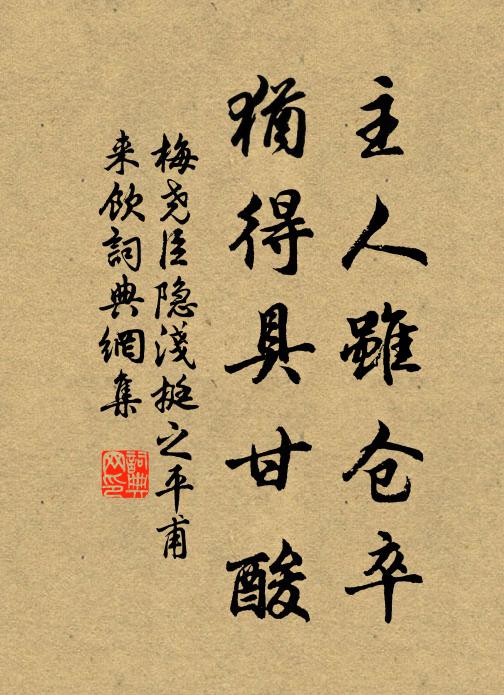 主人雖仓卒
猶得具甘酸
梅尧臣隐淺挺之平甫
来飲詞典網集
詞典
网印